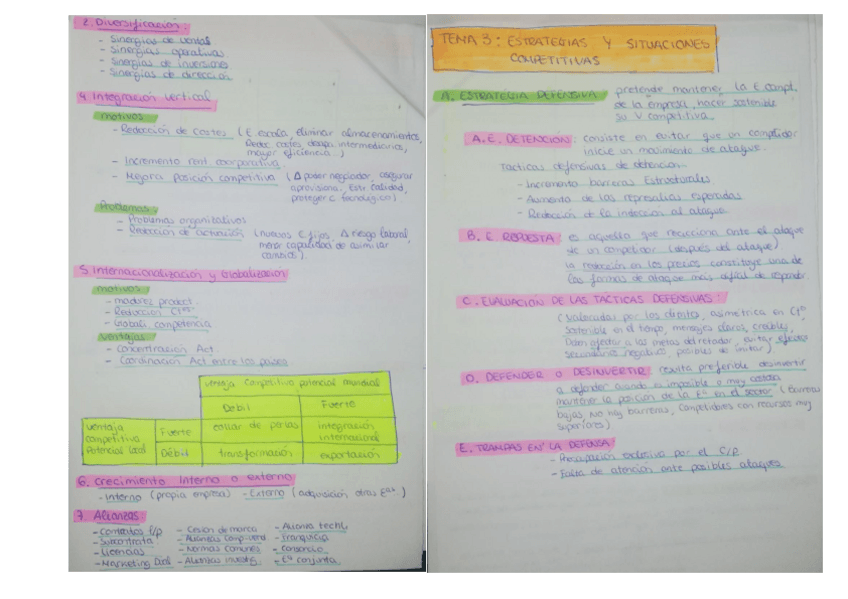 2. Diversificación:
- Sinergias de ventas
- Sinergias operativas
- Sinergias de inversiones
- Sinergias de dirección
4. Integración vertical
motivos
- Reducción de costes (E. escala, eliminar almacenamientos,
Reduc costes, intermediarios,
mayor eficiencia...)
- Incremento rent. corporativa
- Mejora posición competitiva (Δ poder negociador, asegurar
aprovisiona. Este calidad,
proteger C tecnológico)
Problemas
- Problemas organizativos
- Reducción de (nuevos C fijos, Δ riesgo laboral,
menor capacidad de asimilar
cambios)
5. Internacionalización y Globalización
motivos
- madurez product.
- Reducción
- Globali. competencia
ventajas
- Concentración Act.
- Coordinación Act entre los países
ventaja competitiva potencial mundial
Débil Fuerte
ventaja competitiva Potencial local
Fuerte collar de perlas integración internacional
Débil transformación exportación
6. Crecimiento Interno o externo
- Interno (propia empresa) - Externo (adquisición otras Eªs)
7. Alianzas:
- Contratos l/p - Cesión de marca - Alianza techl.
- Subcontrata - Alianzas - Franquicia
- Licencias - Normas comunes - Consorcio
- Marketing - Alianzas investig. - Eª conjunta
TEMA 3: ESTRATEGIAS Y SITUACIONES
COMPETITIVAS
A. ESTRATEGIA DEFENSIVA pretende mantener la E compt.
de la empresa, hacer sostenible
su V competitiva.
A. E. DETENCION: consiste en evitar que un competidor
inicie un movimiento de ataque.
Tácticas defensivas de detención
- Incremento barreras Estructurales
- Aumento de las represalias esperadas
- Reducción de la inducción al ataque
B. E RESPUESTA es aquella que reacciona ante el ataque
de un competidor (después del ataque)
la reducción en los precios constituye una de
las formas de ataque más difícil de responder
C. EVALUACION DE LAS TÁCTICAS DEFENSIVAS:
(valoradas por los clientes, asimétrica en
sostenible en el tiempo, mensajes claros, creíbles,
Deben afectar a las metas del retador, evitar efectos
secundarios negativos, posibles de imitar)
D. DEFENDER O DESINVERTIR resulta preferible desinvertir
a defender cuando es imposible o muy costosa
mantener la posición de la Eª en el sector (Barreras
bajas, No hay barreras, Competidores con recursos muy
superiores)
E. TRAMPAS EN LA DEFENSA:
- Preocupación exclusiva por el C/p
- Falta de atención ante posibles ataques